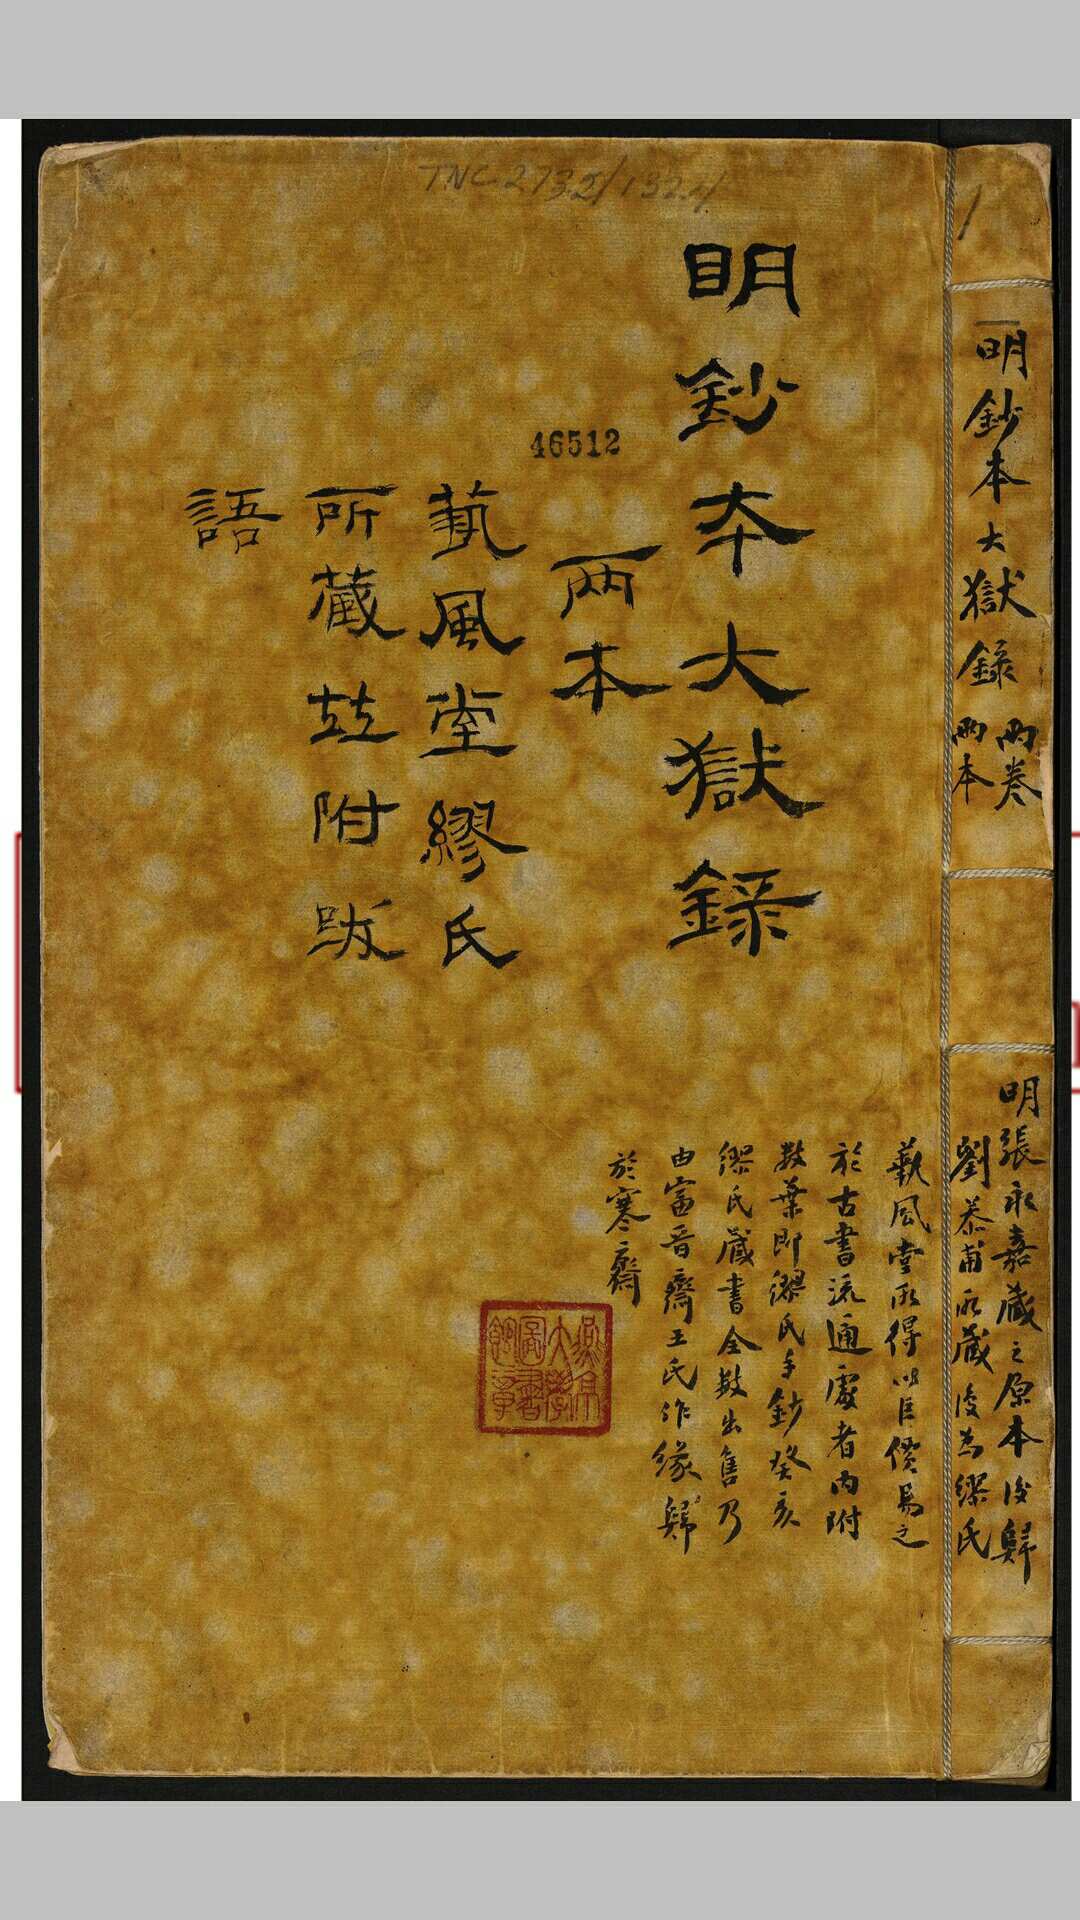 TNC 2732/1324
1
明鈔本大獄錄
兩卷
兩本
明張永嘉藏之原本後歸
劉恭甫所藏後為繆氏
明鈔夲大獄錄
兩本
46512
蓺風堂繆氏
所藏竝附跋
語
蓺風堂所得以巨價易之
於古書流通處者內附
數葉即繆氏手鈔癸亥
繆氏藏書全數出售乃
由富晉齋王氏作緣歸
於寒齋
燕京
大學
圖書
館章